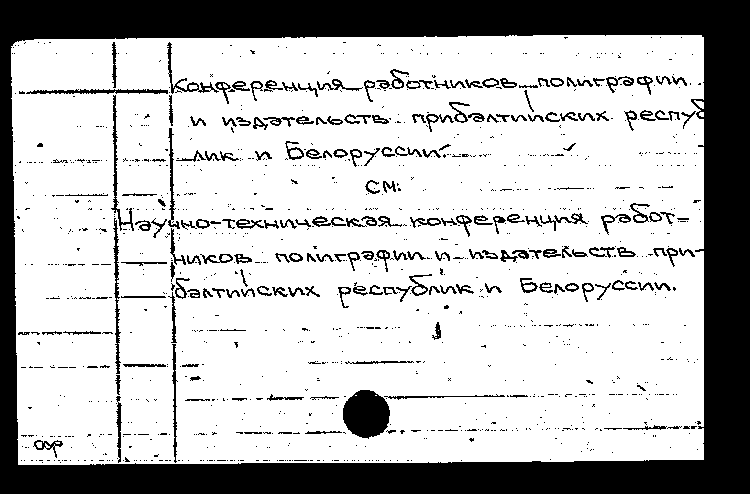 Конференция работников полиграфии
и издательств прибалтийских респуб
лик и Белоруссии.
см:
Научно-техническая конференция работ-
ников полиграфии и издательств при-
балтийских республик и Белоруссии.